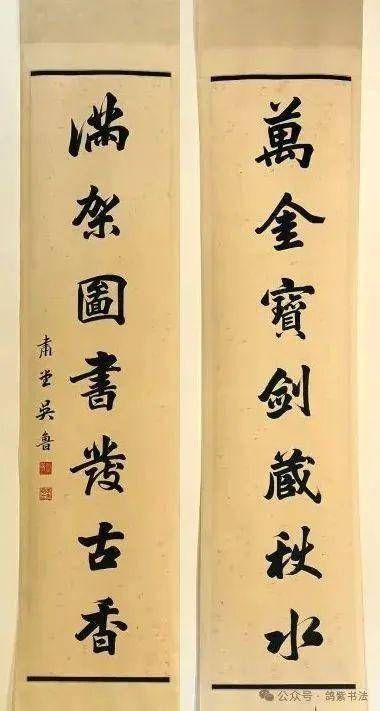 萬金寶劍藏秋水
滿架圖書發古香
肅堂吳魯
公众号·鸽紫书法